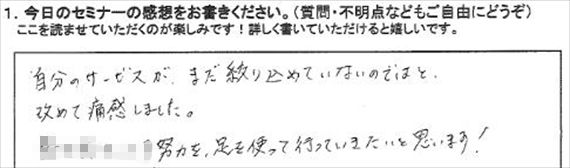 1. 今日のセミナーの感想をお書きください。(質問・不明点などもご自由にどうぞ)
ここを読ませていただくのが楽しみです!詳しく書いていただけると嬉しいです。
自分のサービスが、まだ絞り込めていないのではと、
改めて痛感しました。
努力を、足を使って行っていきたいと思います!